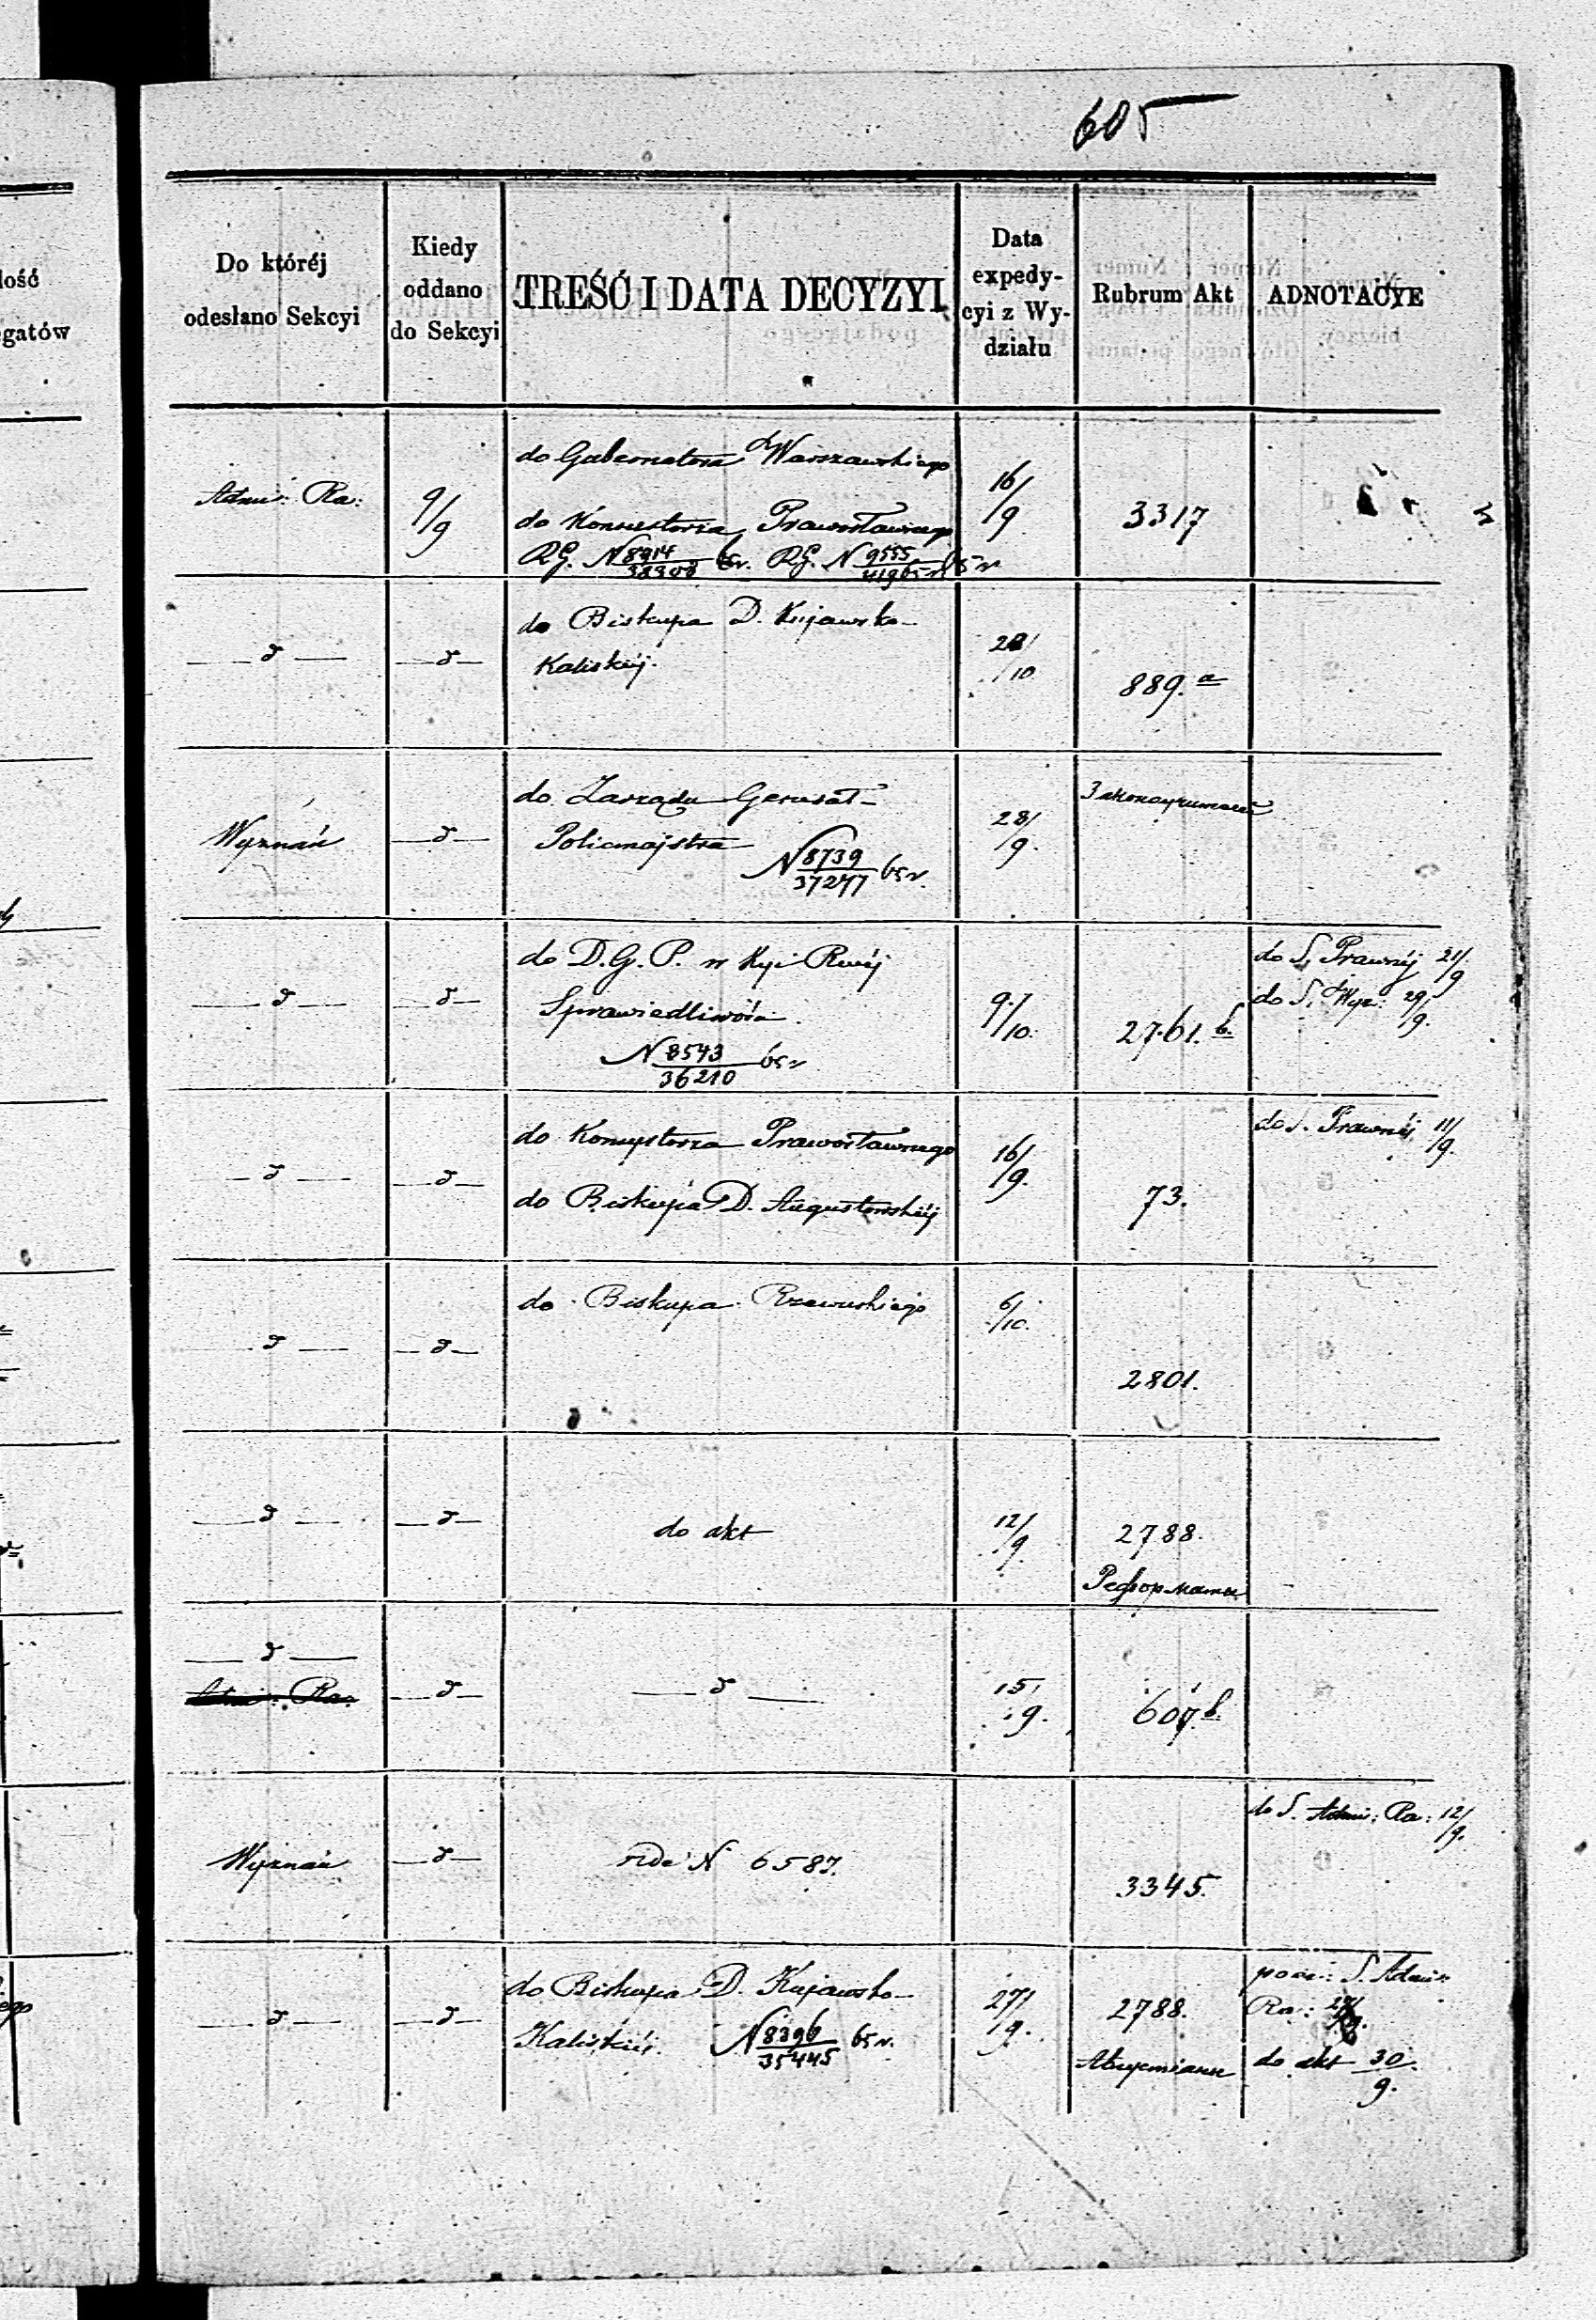 605
Do któréj
odesłano Sekcyi
Kiedy
oddano
do Sekcyi
TREŚĆ I DATA DECYZYI
Data
expedy-
cyi z Wy-
działu
Rubrum Akt
ADNOTACYE
lość
egatów
Admi: Ra:
9/9
do Gubernatora Warszawskiego
do Konsystorza Prawosławnego
RG. N 8914/38308 65 r. RG. N 9555/41965 65 r
16/9
3317
— d —
— d —
do Biskupa D. Kujawsko-
Kaliskiéj.
28/10
889. a
Wyznań
— d —
do Zarządu Generał-
Policmajstra
N 8739/37247 65 r.
28/9.
— d —
— d —
do D.G.P. w Kyi Rwéj
Sprawiedliwości.
N 8543/36210 65 r
9/10.
2761. b.
do S. Prawnéj 21/9
do S. Wyz: 29/9.
— d —
— d —
do Konsystorza Prawosławnego
do Biskupa D. Augustowskiéj
16/9.
73.
do S. Prawnéj 11/9.
— d —
— d —
do Biskupa Rzewuskiego
6/10.
2801.
— d —
— d —
do akt
12/9
2788.
Реформаты
— d —
Admi: Ra:
— d —
— d —
15/9.
607 b.
Wyznań
— d —
vide N 6587.
3345.
do S. Admi: Ra: 12/9.
— d —
— d —
do Biskupa D. Kujawsko-
Kaliskiéj.
N 8396/35445 65 r.
27/9.
2788.
S. Admi:
Ra:
do akt 30/9.